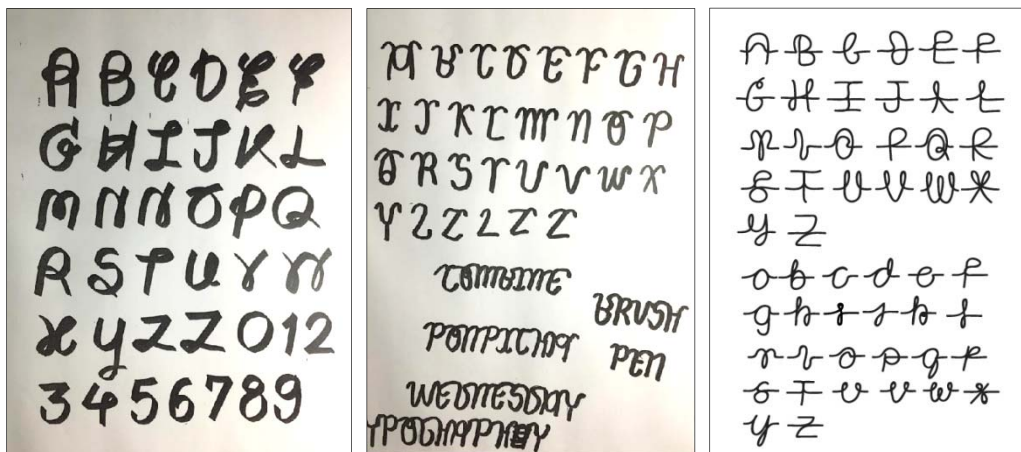 A B C D E F
G H I J K L
M N N O P Q
R S T U V W
X Y Z Z 0 1 2
3 4 5 6 7 8 9
A B C D E F G H
I J K L M N O P
Q R S T U V W X
Y Z Z Z Z Z
COMBINE
BRUSH
PONPICHAY
PEN
WEDNESDAY
YPOGRAPHY
A B C D E F
G H I J K L
M N O P Q R
S T U V W X
Y Z
o b c d e f
g h i j k l
m n o p q r
s t u v w x
y z